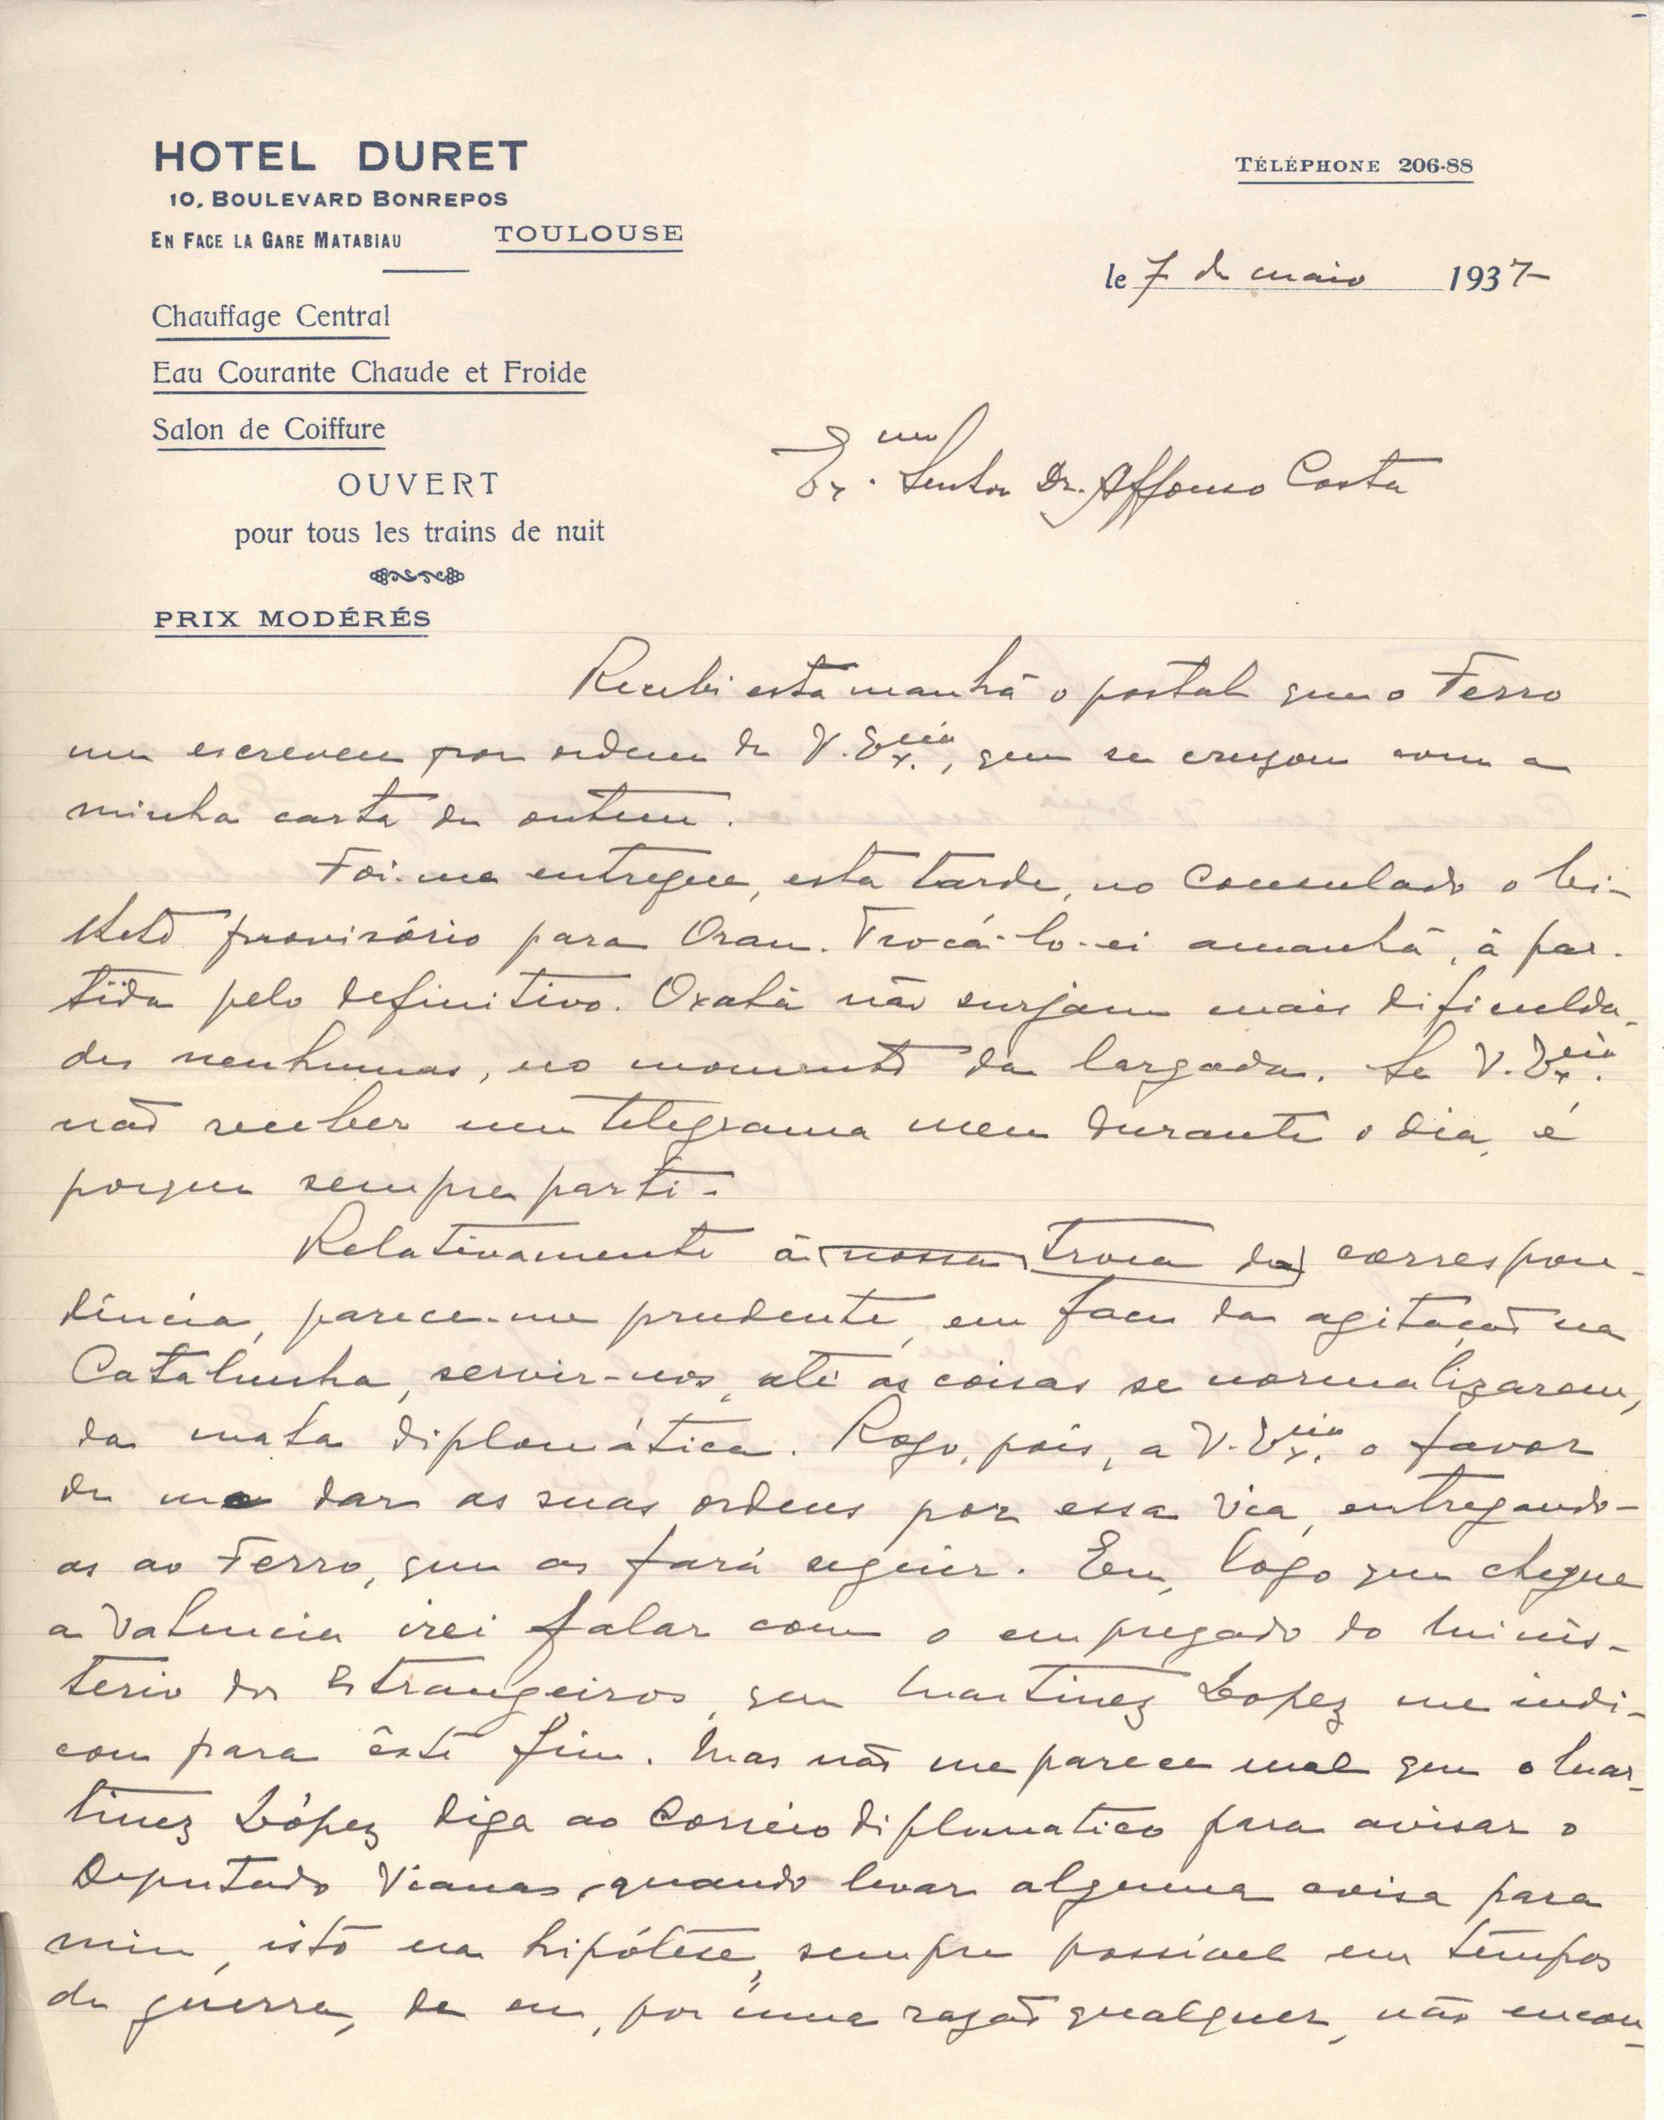 HOTEL DURET
10, BOULEVARD BONREPOS
EN FACE LA GARE MATABIAU TOULOUSE
TÉLÉPHONE 206-88
le 7 de maio 1937
Chauffage Central
Eau Courante Chaude et Froide
Salon de Coiffure
OUVERT
pour tous les trains de nuit
PRIX MODÉRÉS
Ex.mo Senhor Dr. Affonso Costa
Recebi esta manhã o postal que o Ferro
me escreveu por ordem de V. Ex.cia, que se cruzou com a
minha carta de ontem.
Foi-me entregue, esta tarde, no Consulado o bi-
lhete provisório para Oran. Trocá-lo-ei amanhã, à par-
tida pelo definitivo. Oxalá não surjam mais dificulda-
des nenhumas, no momento da largada. Se V. Ex.cia
não receber um telegrama meu durante o dia, é
porque sempre parti.
Relativamente à nossa troca de correspon-
dência, parece-me prudente, em face da agitação na
Catalunha, servir-nos, até as coisas se normalizarem,
da mala diplomática. Rogo, pois, a V. Ex.cia o favor
de me dar as suas ordens por essa via, entregando-
as ao Ferro, que as fará seguir. Eu, logo que chegue
a Valencia irei falar com o empregado do Minis-
terio dos Estrangeiros, que Martinez Lopez me indi-
cou para êste fim. Mas não me parece mal que o Mar-
tinez López diga ao Correio diplomatico para avisar o
Deputado Vianas, quando levar alguma coisa para
mim, isto na hipótese, sempre possivel em tempos
de guerra, de eu, por uma razão qualquer, não encon-